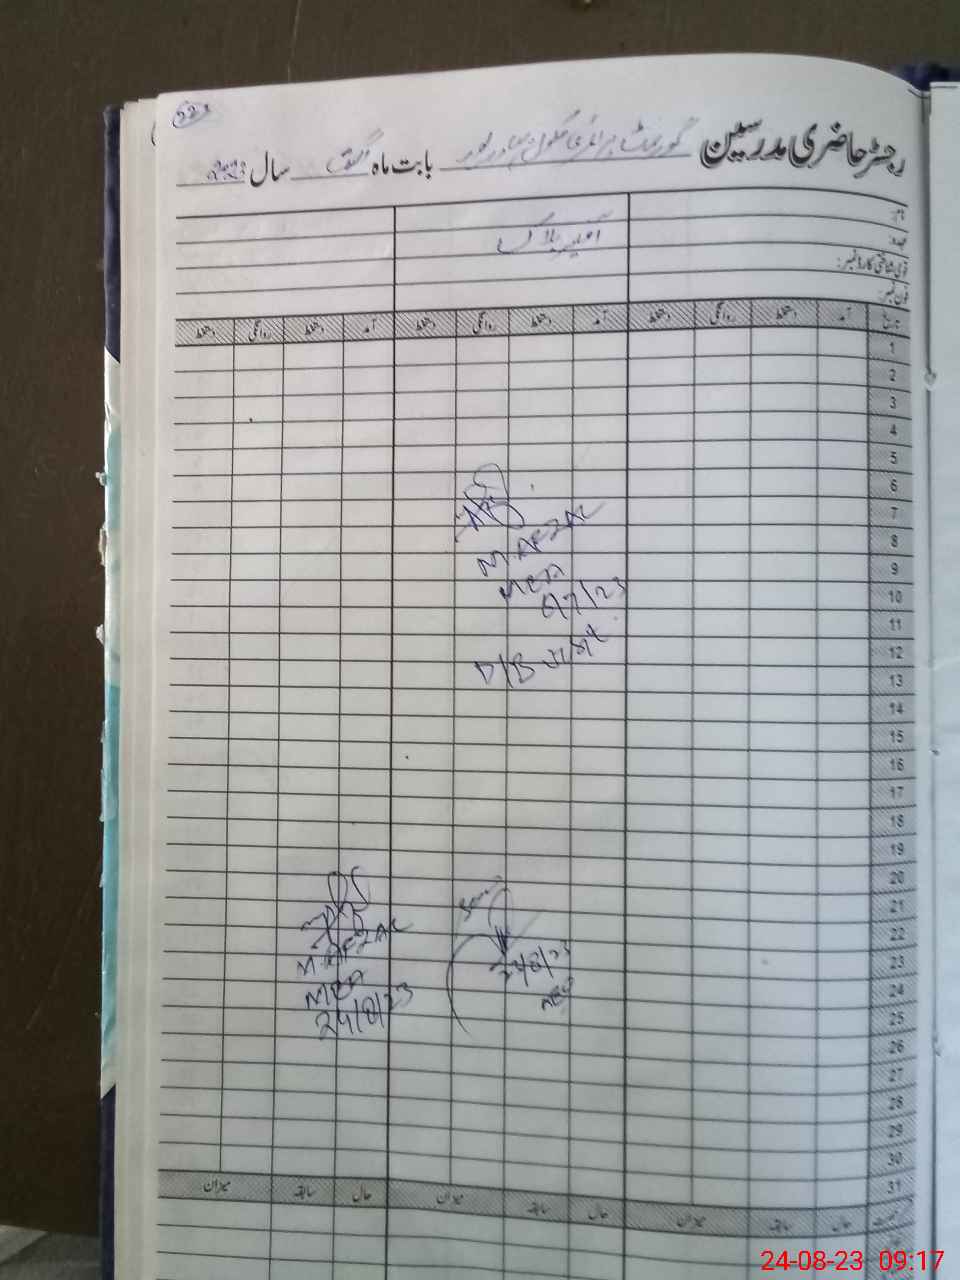 223
رجسٹر حاضری مدرسین گورنمنٹ پرائمری سکول بابت ماہ اگست سال 2023
نام:
عہدہ:
آفیسر بلاک
قومی شناختی کارڈ نمبر:
فون نمبر:
تاریخ آمد دستخط روانگی دستخط آمد دستخط روانگی دستخط آمد دستخط روانگی دستخط
1
2
3
4
5
6
7
8
9
10
11
12
13
14
15
16
17
18
19
20
21
22
23
24
25
26
27
28
29
30
31
M. AFZAL
MEA
6/7/23
M. AFZAL
MEA
24/8/23
24/8/23
AEO
رخصت حال سابقہ میزان حال سابقہ میزان حال سابقہ میزان
24-08-23 09:17